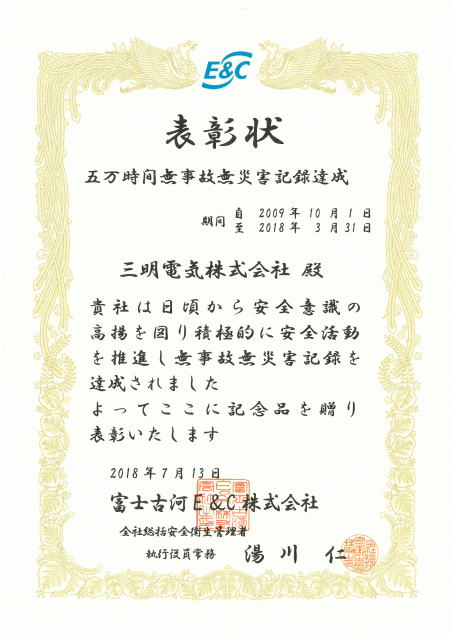 E&C
表彰状
五万時间無事故無災害記録達成
期间 自 2009年 10月 1日
至 2018年 3月 31日
三明電気株式会社 殿
貴社は日頃から安全意識の
高揚を図り積極的に安全活動
を推進し無事故無災害記録を
達成されました
よってここに記念品を贈り
表彰いたします
2018年7月13日
富士古河E&C株式会社
全社総括安全衛生管理者
執行役員常務 湯川 仁